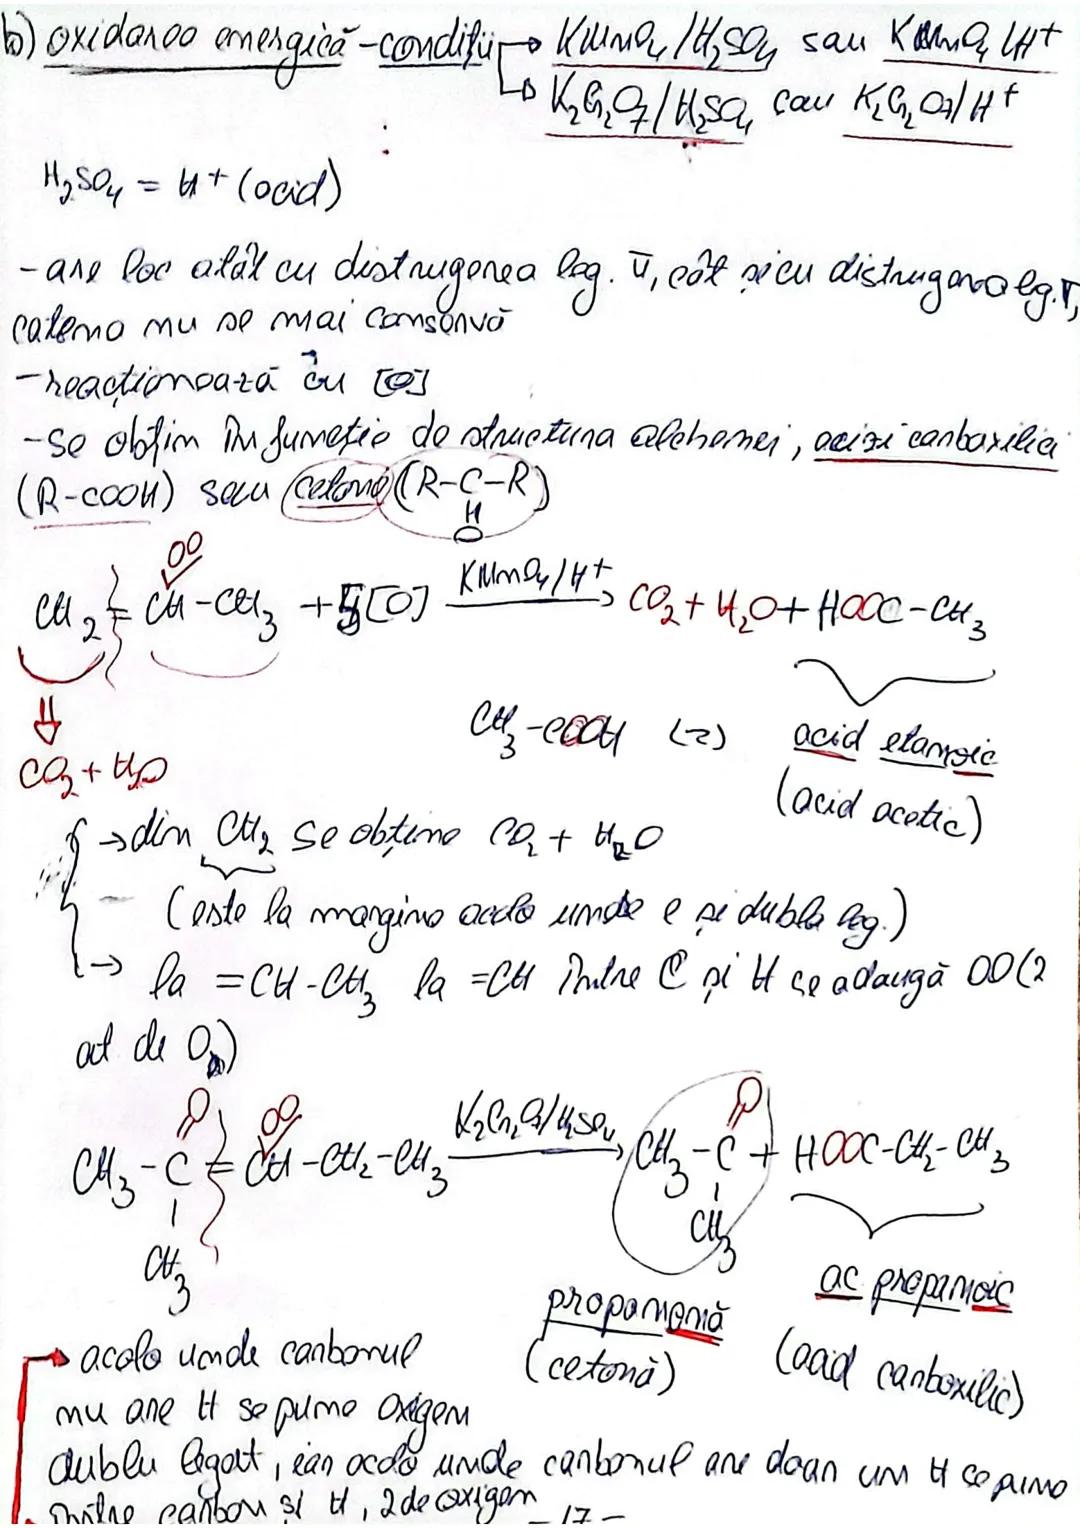 b) oxidarea energică - condiții → KMnO4/H2SO4 sau KMnO4/H+
→ K2Cr2O7/H2SO4 sau K2Cr2O7/H+
H2SO4 = H+ (acid)
- are loc atât cu distrugerea leg. π, cât și cu distrugerea leg. σ,
catena nu se mai conservă
- reacționează cu [O]
- se obțin în funcție de structura alchenei, acizi carboxilici
(R-COOH) sau cetone (R-C-R)
||
O
OO
CH2 = CH-CH3 + 5[O] KMnO4/H+ → CO2 + H2O + HOOC-CH3
⇓
CH3-COOH (=) acid etanoic
CO2 + H2O
(acid acetic)
→ din CH2 se obține CO2 + H2O
(este la margine acolo unde e și dubla leg.)
→ la =CH-CH3 la =CH între C și H se adaugă OO (2
at de O)
O OO K2Cr2O7/H2SO4 O
CH3-C = CH-CH2-CH3 → CH3-C + HOOC-CH2-CH3
CH3 CH3
propanonă ac propanoic
(cetonă) (acid carboxilic)
→ acolo unde carbonul
nu are H se pune oxigen
dublu legat, iar acolo unde carbonul are doar un H se pune
între carbon și H, 2 de oxigen
- 17 -